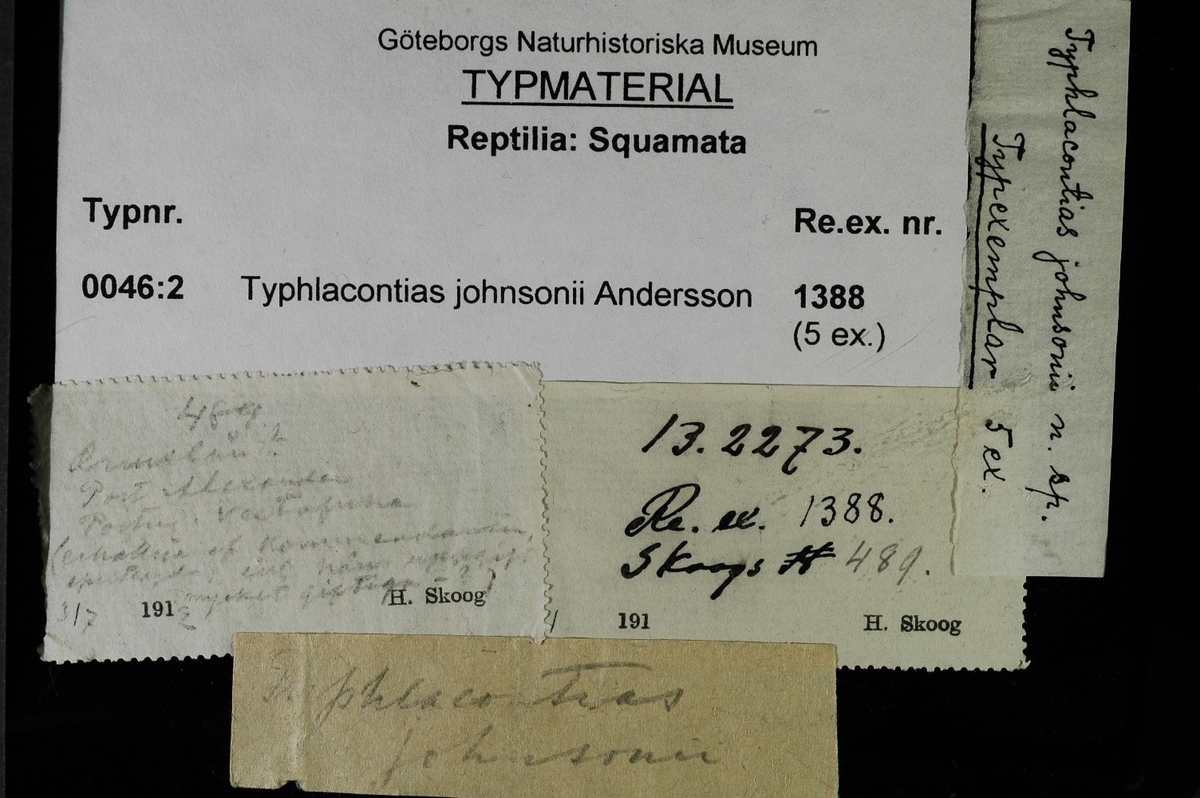 Göteborgs Naturhistoriska Museum
TYPMATERIAL
Reptilia: Squamata
Typnr. Re.ex. nr.
0046:2 Typhlacontias johnsonii Andersson 1388
(5 ex.)
Typhlacontias johnsonii n. sp.
Typexemplar 5 ex.
489
Port Alexander
Portug.
af Kommendanten,
mycket giftiga
3/7 1912 H. Skoog
13.2273.
Re. ex. 1388.
Skoogs # 489.
191 H. Skoog
Typhlacontias
johnsonii